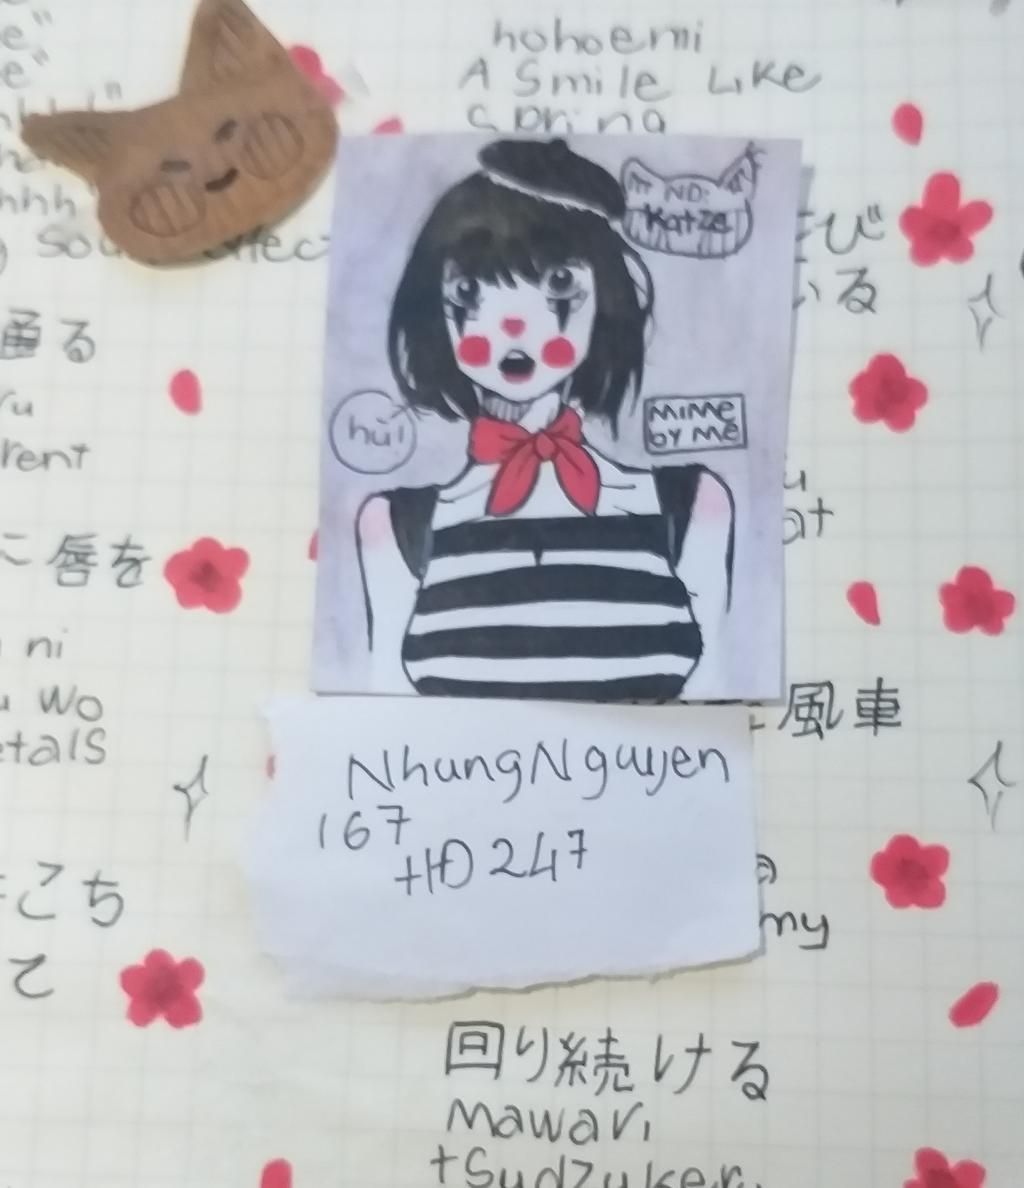 e"
e"
hohoemi
A Smile Like
Spring
hhh
ND:
Katze
び
いる
通る
ru
rent
hù!
MiMe
by Me
u
at
に唇を
ni
u wo
etals
風車
NhungNguyen
167
HĐ 247
こち
て
my
回り続ける
Mawari
tsudzukeru